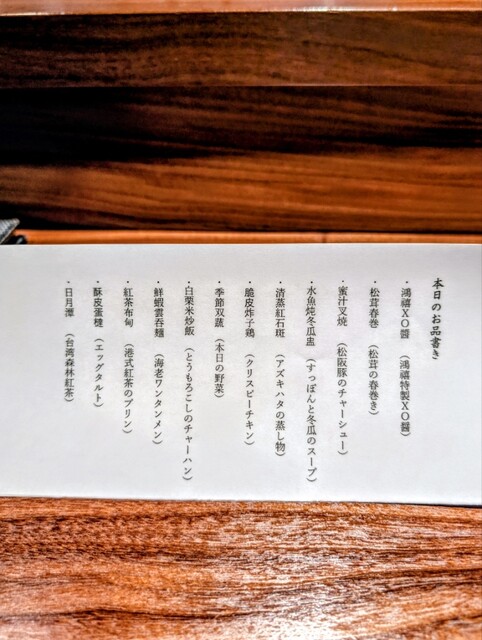 本日のお品書き
・鴻禧XO醬 （鴻禧特製XO醬）
・松茸春巻 （松茸の春巻き）
・蜜汁叉焼 （松阪豚のチャーシュー）
・水魚炖冬瓜盅 （すっぽんと冬瓜のスープ）
・清蒸紅石斑 （アズキハタの蒸し物）
・脆皮炸子鶏 （クリスピーチキン）
・季節双蔬 （本日の野菜）
・白粟米炒飯 （とうもろこしのチャーハン）
・鮮蝦雲呑麺 （海老ワンタンメン）
・紅茶布甸 （港式紅茶のプリン）
酥皮蛋撻 （エッグタルト）
・日月潭 （台湾森林紅茶）